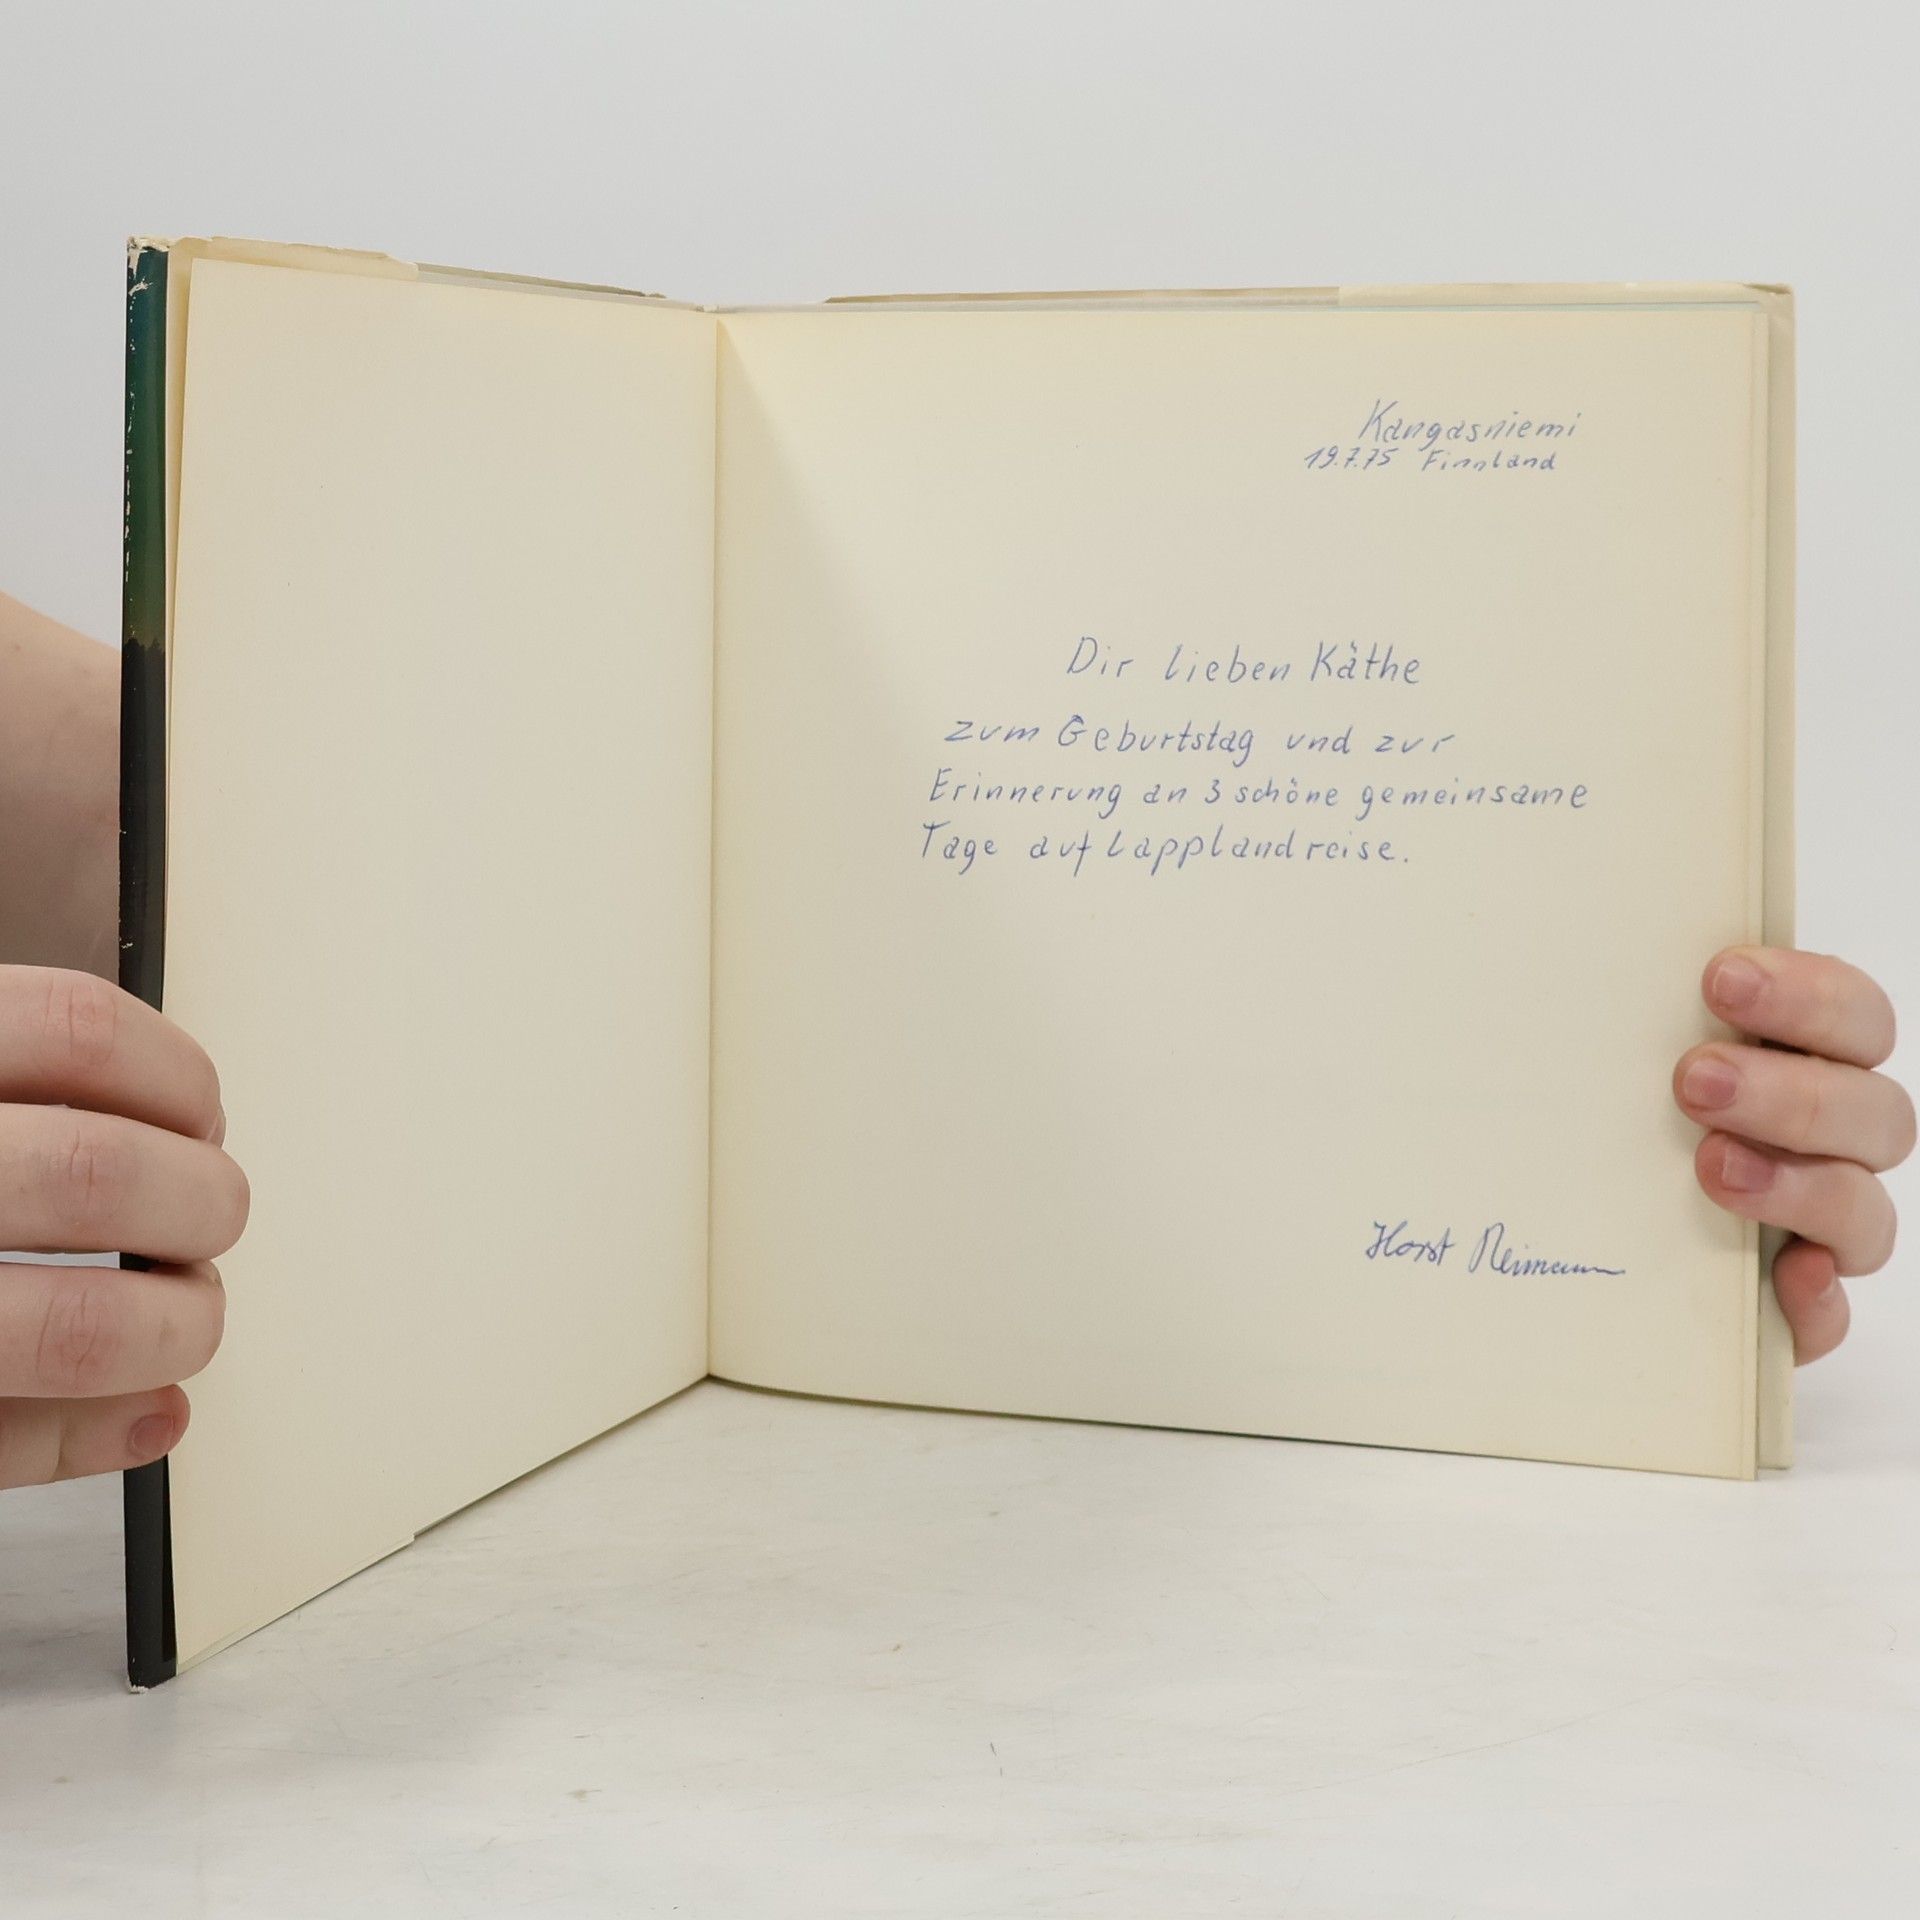 Kangasniemi
19.7.75 Finnland
Dir lieben Käthe
zum Geburtstag und zur
Erinnerung an 3 schöne gemeinsame
Tage auf Lapplandreise.
Horst Reimann